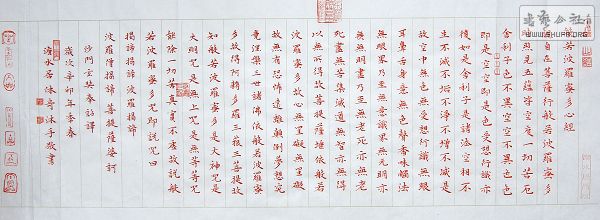 般若波羅蜜多心經
觀自在菩薩行深般若波羅蜜多
時照見五蘊皆空度一切苦厄
舍利子色不異空空不異色色
即是空空即是色受想行識亦
復如是舍利子是諸法空相不
生不滅不垢不淨不增不減是
故空中無色無受想行識無眼
耳鼻舌身意無色聲香味觸法
無眼界乃至無意識界無無明亦
無無明盡乃至無老死亦無老
死盡無苦集滅道無智亦無得
以無所得故菩提薩埵依般若
波羅蜜多故心無罣礙無罣礙
故無有恐怖遠離顛倒夢想究
竟涅槃三世諸佛依般若波羅蜜
多故得阿耨多羅三藐三菩提故
知般若波羅蜜多是大神咒是
大明咒是無上咒是無等等咒
能除一切苦真實不虛故說般
若波羅蜜多咒即說咒曰
揭諦揭諦波羅揭諦
波羅僧揭諦菩提薩婆訶
沙門玄奘奉詔譯
歲次辛卯年季春
水居沐手敬書
WWW.SHUFA.ORG